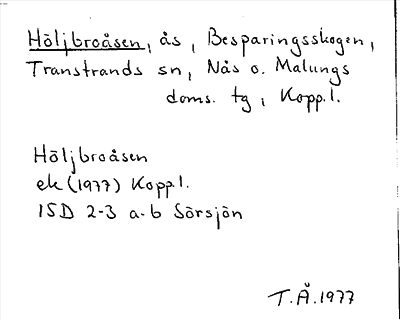 Höljbroåsen, ås, Besparingsskogen,
Transtrands sn, Nås o. Malungs
doms. tg, Kopp.l.
Höljbroåsen
ek (1977) Kopp.l.
15D 2-3 a-b Sörsjön
T.Å.1977